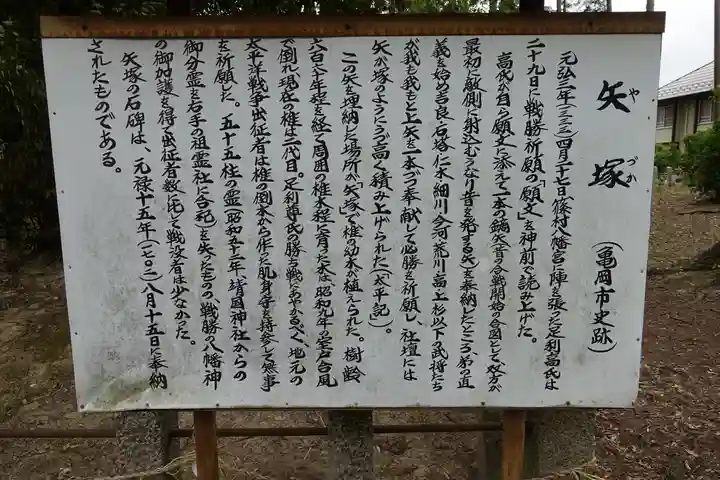 矢塚
やづか
(亀岡市史跡)
元弘三年(一三三三)四月二十七日篠村八幡宮に陣を張った足利高氏は
二十九日に戦勝祈願の「願文」を神前で読み上げた。
高氏が自ら願文に添えて一本の鏑矢(昔の合戦開始の合図として双方が
最初に敵側に射込むうなり音を発する矢)を奉納したところ、弟の直
義を始め吉良、石塔、仁木、細川、今河、荒川、高、上杉以下の武将たち
が我も我もと上矢を一本づつ奉献して必勝を祈願し、社壇には
矢が塚のようにうず高く積み上げられた(「太平記」)。
この矢を埋納した場所が「矢塚」で椎の幼木が植えられた。樹齢
六百六十年程を経て周囲の椎木程に育った木は昭和九年の室戸台風
で倒れ、現在の椎は二代目。足利尊氏の勝ち戦にあやかるべく、地元の
太平洋戦争出征者は椎の倒木から作った肌身守を持参して無事
を祈願した。五十五柱の霊(昭和五十二年、靖国神社からの
御分霊を右手の祖霊社に合祀)を失ったものの、戦勝の八幡神
の御加護を得て出征者数に比して戦没者は少なかった。
矢塚の石碑は、元禄十五年(一七〇二)八月十五日に奉納
されたものである。